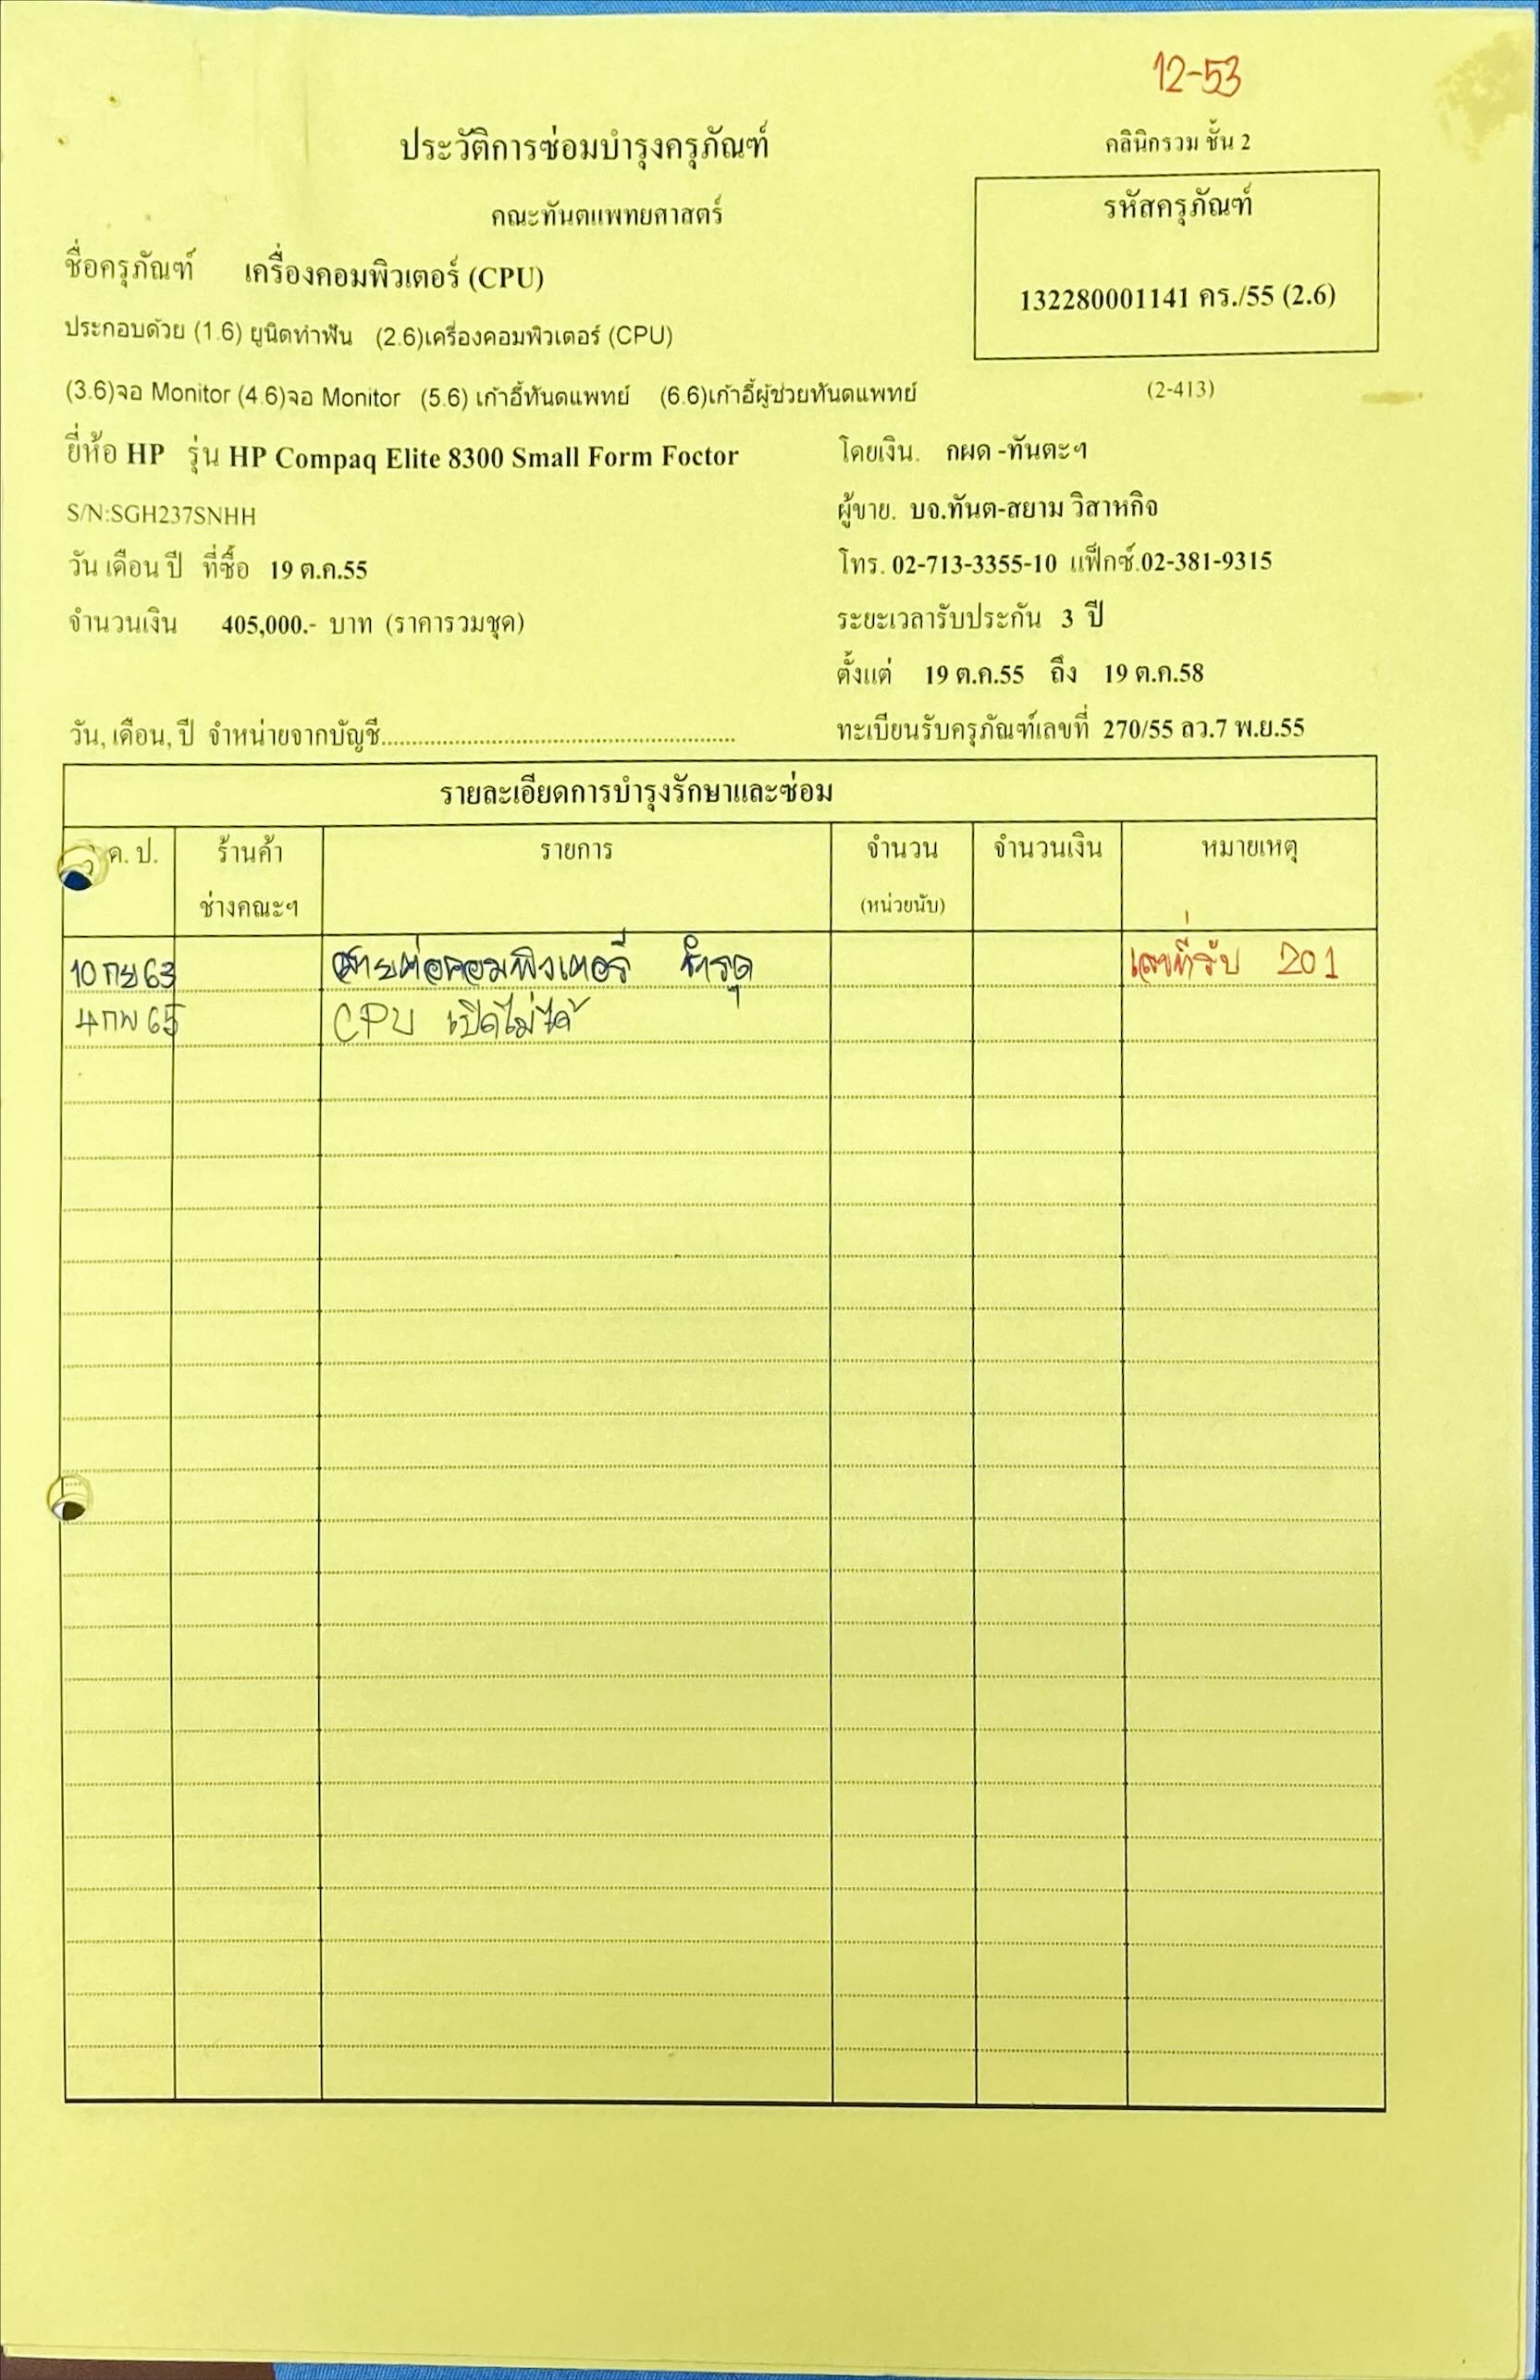 12-53
ประวัติการซ่อมบำรุงครุภัณฑ์
คลินิกรวม ชั้น 2
คณะทันตแพทยศาสตร์
รหัสครุภัณฑ์
ชื่อครุภัณฑ์ เครื่องคอมพิวเตอร์ (CPU)
132280001141 คร./55 (2.6)
ประกอบด้วย (1.6) ยูนิตทำฟัน (2.6)เครื่องคอมพิวเตอร์ (CPU)
(3.6)จอ Monitor (4.6)จอ Monitor (5.6) เก้าอี้ทันตแพทย์ (6.6)เก้าอี้ผู้ช่วยทันตแพทย์
(2-413)
ยี่ห้อ HP รุ่น HP Compaq Elite 8300 Small Form Foctor
โดยเงิน. กผด -ทันตะฯ
S/N:SGH237SNHH
ผู้ขาย. บจ.ทันต-สยาม วิสาหกิจ
วัน เดือน ปี ที่ซื้อ 19 ต.ค.55
โทร. 02-713-3355-10 แฟ็กซ์.02-381-9315
จำนวนเงิน 405,000.- บาท (ราคารวมชุด)
ระยะเวลารับประกัน 3 ปี
ตั้งแต่ 19 ต.ค.55 ถึง 19 ต.ค.58
วัน, เดือน, ปี จำหน่ายจากบัญชี............................................................
ทะเบียนรับครุภัณฑ์เลขที่ 270/55 ลว.7 พ.ย.55
รายละเอียดการบำรุงรักษาและซ่อม
ว ด. ป. ร้านค้า รายการ จำนวน จำนวนเงิน หมายเหตุ
ช่างคณะฯ (หน่วยนับ)
10 กย 63 สายต่อคอมพิวเตอร์ ชำรุด เลขที่รับ 201
4 กพ 65 CPU เปิดไม่ได้